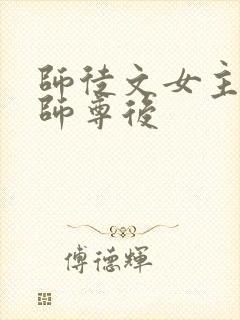 師徒文女主
師尊後
傅德輝